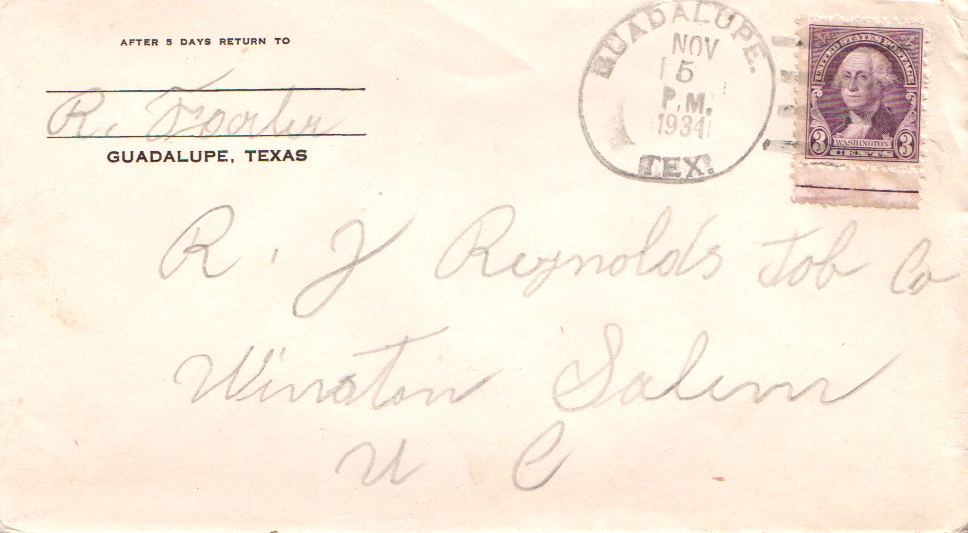 AFTER 5 DAYS RETURN TO
R.
GUADALUPE, TEXAS
GUADALUPE.
NOV
5
P.M.
1934
TEX.
UNITED STATES POSTAGE
3 WASHINGTON 3
CENTS
R. J Reynolds Tob Co
Winston Salem
N C